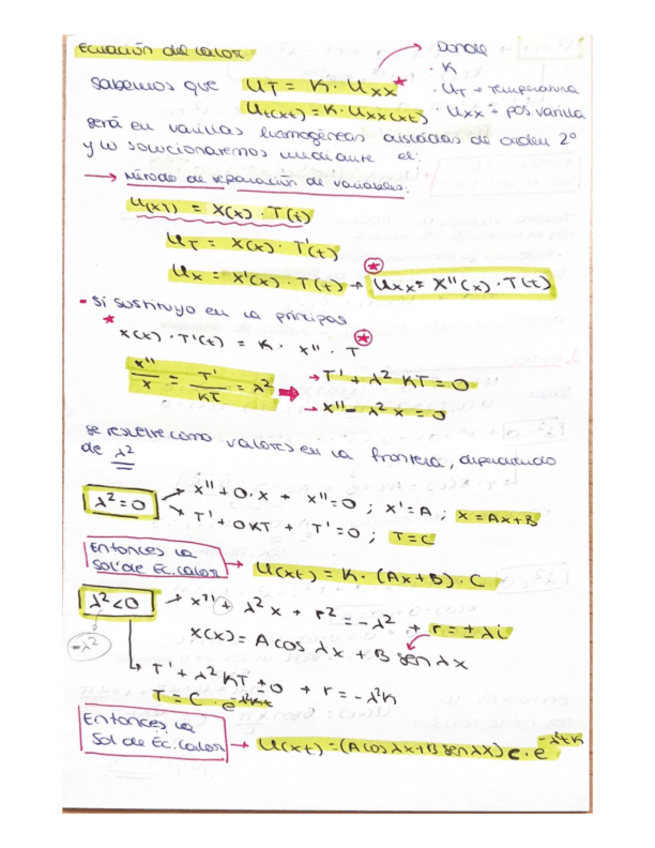 Ecuación del calor
Donde
· K
sabemos que U_T = K · U_xx *
· U_T → Temperatura
U_t(xt) = K · U_xx(xt)
· U_xx = pos varilla
será en varillas homogéneas aisladas de orden 2º
y lo solucionaremos mediante el:
→ Método de separación de variables:
U(xT) = X(x) · T(t)
U_T = X(x) · T'(t)
U_x = X'(x) · T(t) → U_xx = X''(x) · T(t) *
- Si sustituyo en la principal
* X(x) · T'(t) = K · X'' · T *
X''/X = T'/KT = λ² ⇒ → T' + λ² KT = 0
→ X'' - λ² X = 0
se resuelve como valores en la frontera, dependiendo
de λ²
λ² = 0 → X'' + 0 · X → X'' = 0 ; X' = A ; X = Ax + B
→ T' + 0KT → T' = 0 ; T = C
Entonces la
Sol de Ec. calor → U(xt) = K · (Ax + B) · C
λ² < 0 → X'' + λ² x → r² = -λ² → r = ± λi
-λ²
X(x) = A cos λx + B sen λx
↳ T' + λ² KT = 0 → r = -λ² K
T = C · e^-λ²Kt
Entonces la
Sol de Ec. calor → U(xt) = (A cos λx + B sen λx) C · e^-λ²tK